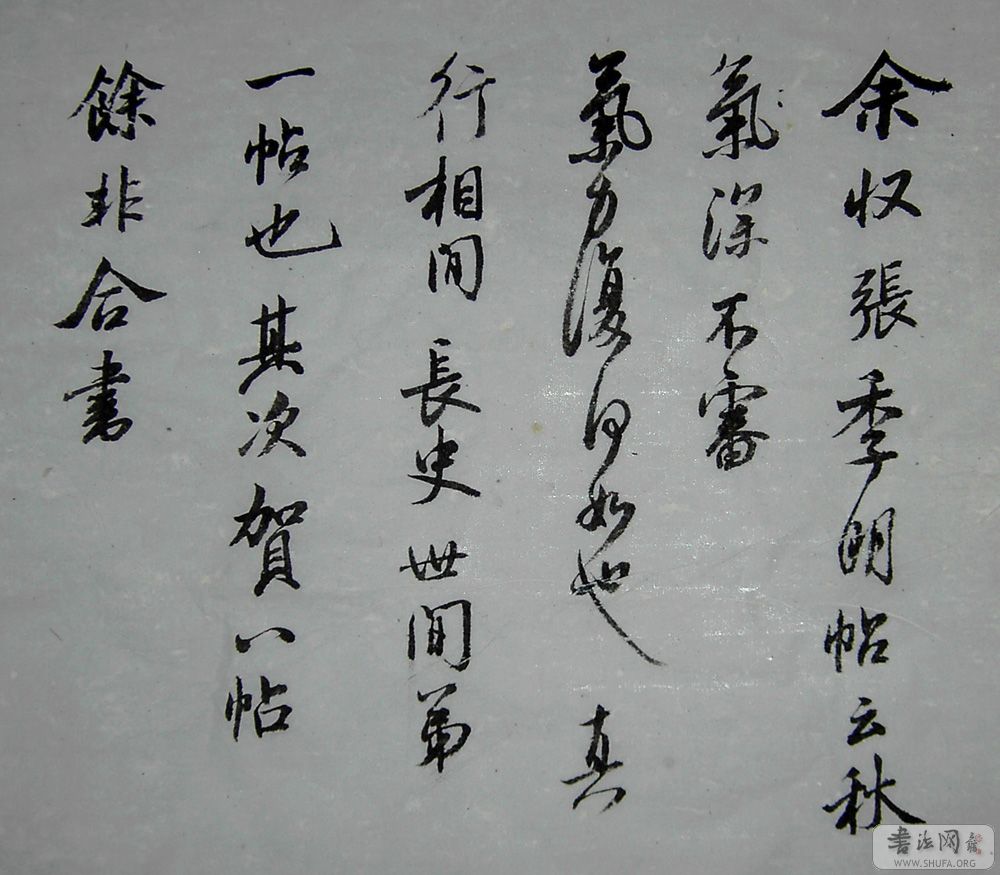 余収張季明帖云秋
氣深不審
氣力復何如也真
行相間長史世間第
一帖也其次賀八帖
餘非合書
書法网
WWW.SHUFA.ORG